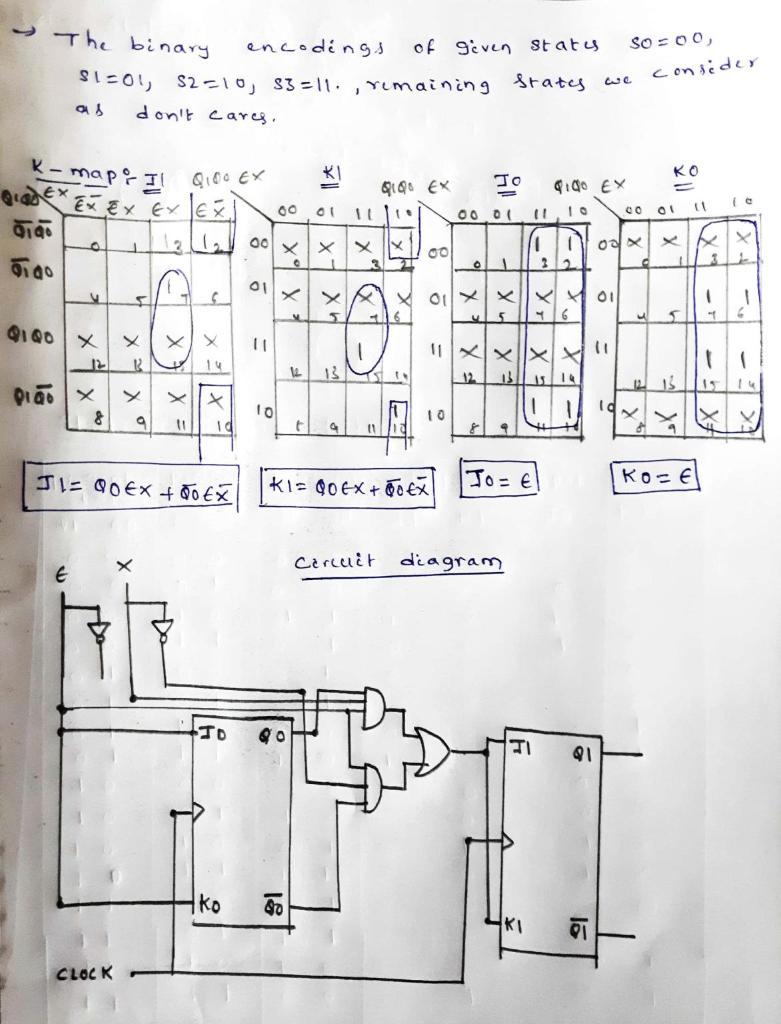 → The binary encodings of given states S0=00,
S1=01, S2=10, S3=11. , remaining states we consider
as don't cares.
K-map: J1
Q1Q0 EX
K1
Q1Q0 EX
J0
Q1Q0 EX
K0
Q1Q0 EX E̅X̅ E̅X EX EX̅
00 01 11 10
00 01 11 10
00 01 11 10
Q̅1Q̅0 0 1 1 3 1 2
00 X 0 X 1 X 3 X 2
00 0 1 1 3 1 2
00 X 0 X 1 X 3 X 2
Q̅1Q0 4 5 1 7 6
01 X 4 X 5 X 7 X 6
01 X 4 X 5 X 7 X 6
01 4 5 1 7 1 6
Q1Q0 X 12 X 13 X 15 X 14
11 12 13 1 15 14
11 X 12 X 13 X 15 X 14
11 12 13 1 15 1 14
Q1Q̅0 X 8 X 9 X 11 X 10
10 8 9 11 1 10
10 8 9 1 11 1 10
10 X 8 X 9 X 11 X 10
J1= Q0EX + Q̅0EX̅
K1= Q0EX + Q̅0EX̅
J0= E
K0= E
Circuit diagram
E X
J0 Q0
J1 Q1
K0 Q̅0
K1 Q̅1
CLOCK